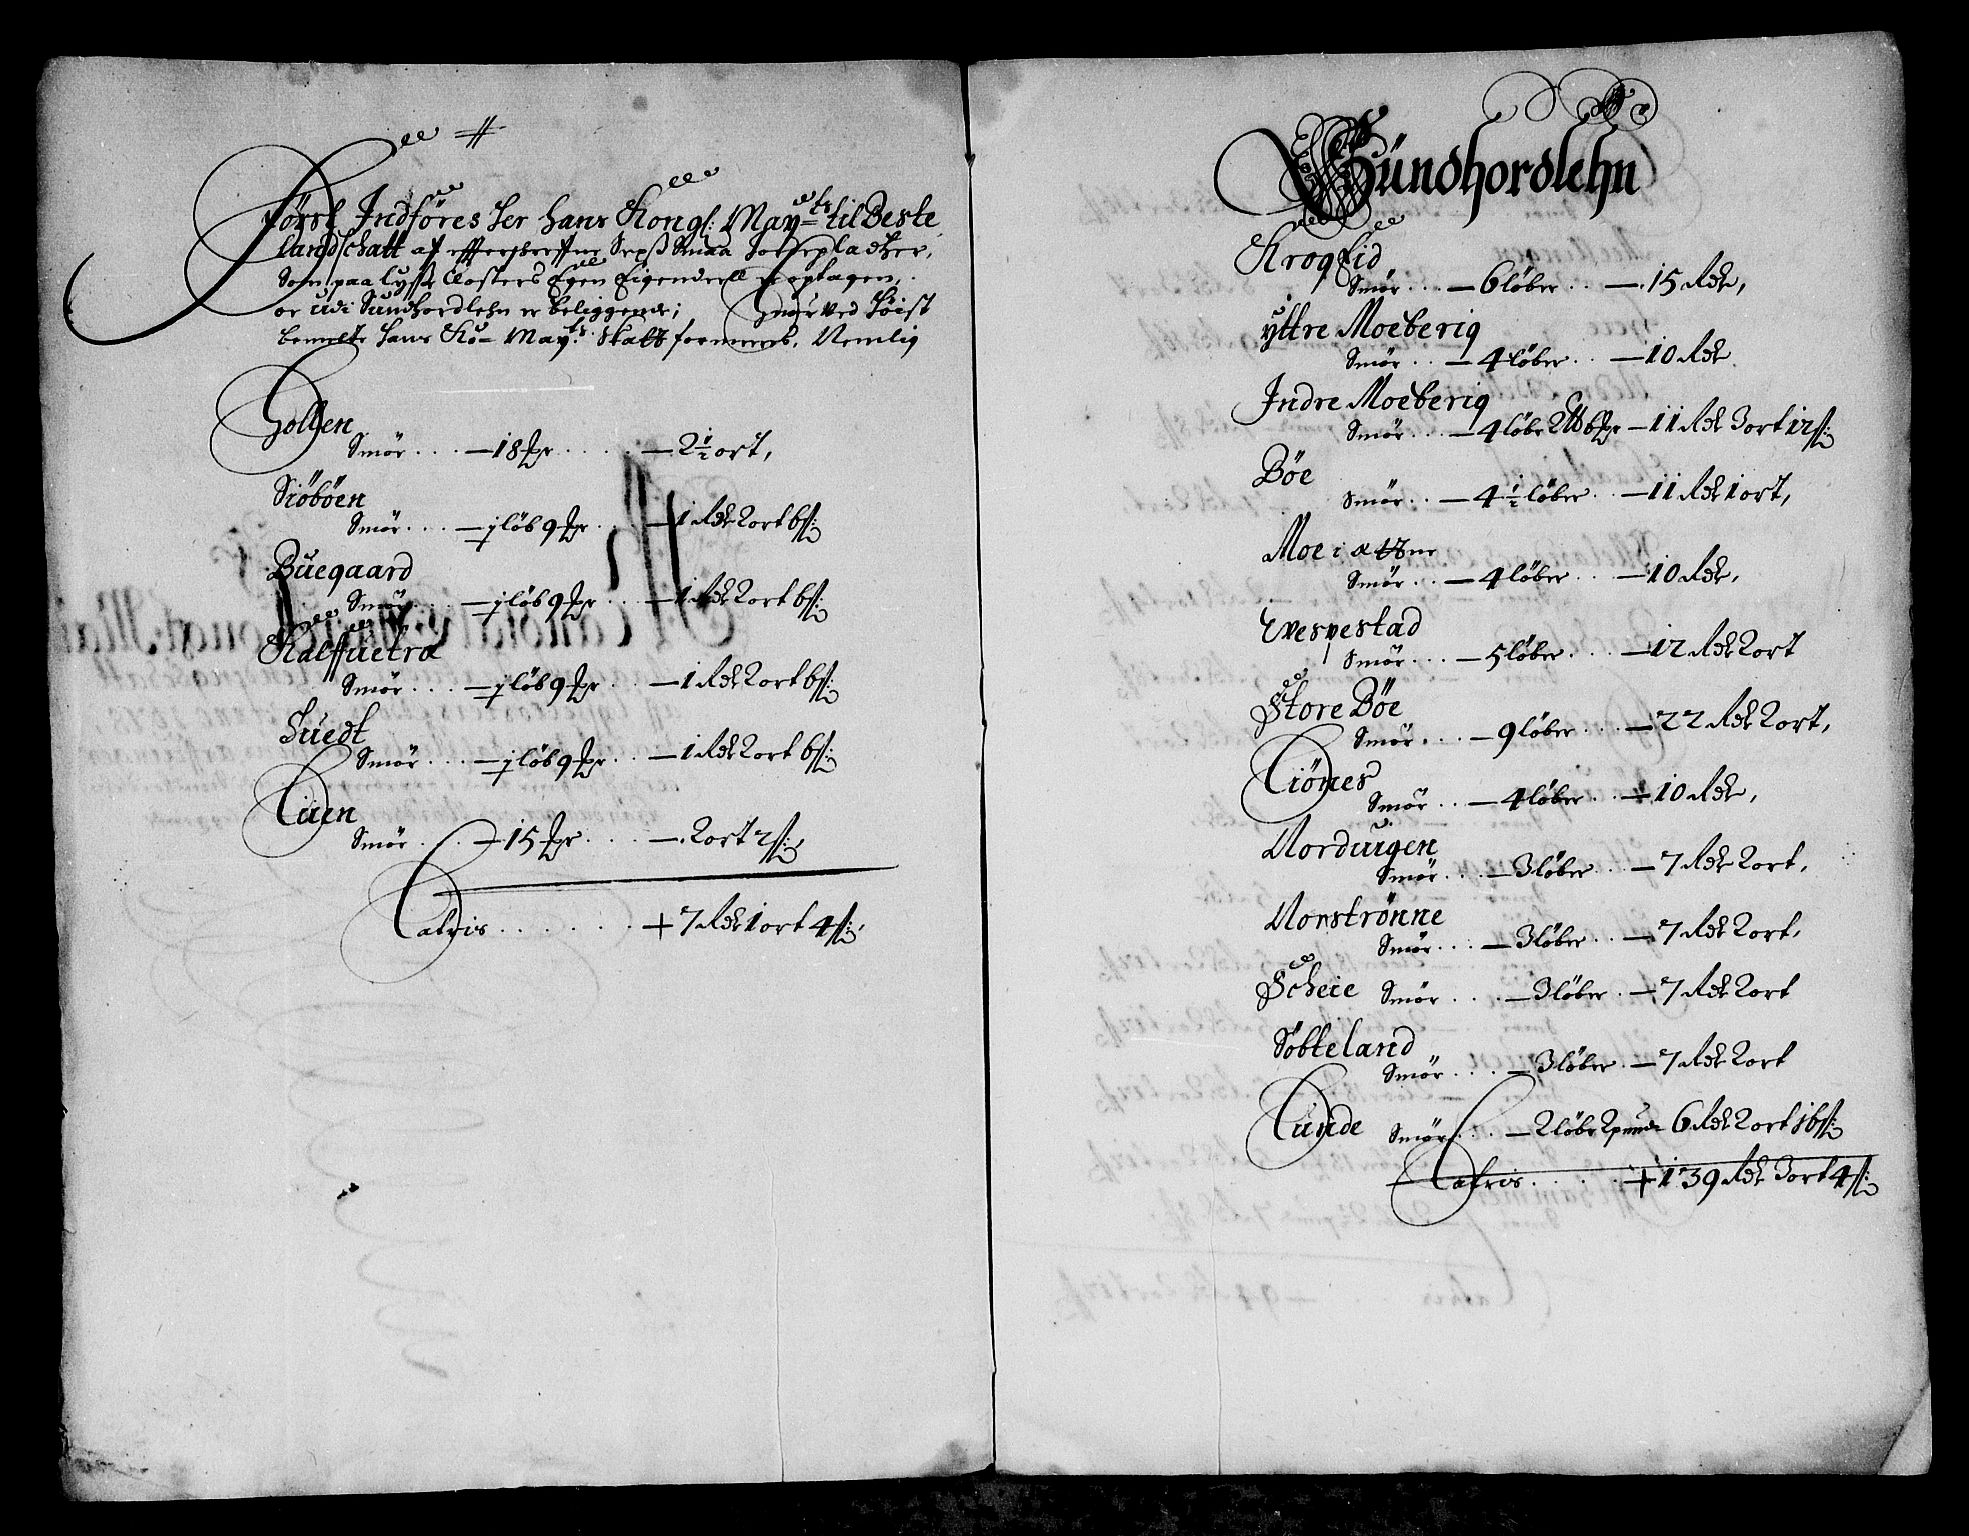 Først Indføres her hans Kongl: Mayts til Beste
landschatt af effterschreffne Sex Smaa Jordepladtzer,
Som paa Lysse Closters Egen Eigendeell er optagen,
oc udi Sundhordlehn er beliggende; huor ved høist
bemelte hans Ko– Mayts: Skatt formeeris, Nemlig
Hollen
Smør . . . – 18 pr . . . . – 2½ ort,
Siöböen
Smør . . . – 1 löb 9 pr . . . – 1 Rdr 2 ort 6 ſs:
Buegaard
Smør . . . – 1 löb 9 pr . . . – 1 Rdr 2 ort 6 ſs:
Kalffuetræ
Smør . . . – 1 löb 9 pr . . . – 1 Rdr 2 ort 6 ſs:
Huedt
Smør . . . – 1 löb 9 pr . . – 1 Rdr 2 ort 6 ſs:
Tuen
Smør . . . – 15 pr . . . . – 2 ort 2 ſs:,
Lateris . . . . . . . + 7 Rdr 1 ort 4 ſs:,
Sundhordlehn
Krogeid
Smør . . . – 6 löber . . – 15 Rdr,
yttre Moeberig
Smør . . – 4 löber . . – 10 Rdr
Indre Moeberig
Smør . . . – 4 löber 6 pr – 11 Rdr 3 ort 12 ſs:
Böe
Smør . . . – 4½ löber . . – 11 Rdr 1 ort,
Moe i
Smør . . . – 4 löber . . . – 10 Rdr,
Evespestad
Smør . . . – 5 löber . . . – 12 Rdr 2 ort
Store Böe
Smør . . – 9 löber . . . – 22 Rdr 2 ort,
Tiönes
Smør . . – 4 löber . . + 10 Rdr,
Norduigen
Smør . . . – 3 löber . . . – 7 Rdr 2 ort,
Norströnne
Smør . . . . – 3 löber . . – 7 Rdr 2 ort,
Scheie Smør . . . . – 3 löber . – 7 Rdr 2 ort
Söbteland
Smør . . . . – 3 löber . – 7 Rdr 2 ort
Tunde Smør . . . – 2 löber 2 pund – 6 Rdr 2 ort 16 ſs:
Lateris . . . . . + 139 Rdr 3 ort 4 ſs: